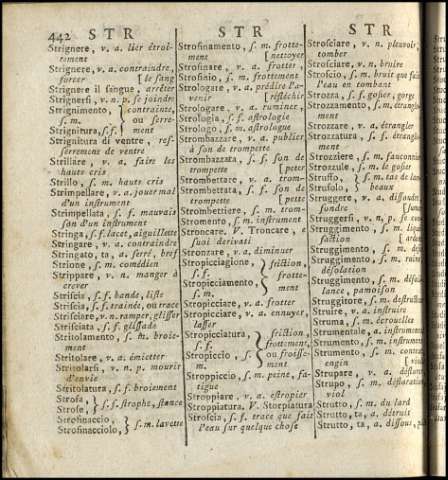 442 STR STR STR
Strignere, v. a. lier étroi-
tement
Strignere, v. a. contraindre,
forcer [le sang
Strignere il sangue, arrêter
Strignersi, v. n. p. se joindre
Strignimento, contrainte,
s. m. ou serre-
Strignitura, s. f. ment
Strignitura di ventre, res-
serrement de ventre
Strillare, v. a. faire les
hauts cris
Strillo, s. m. hauts cris
Strimpellare, v. a. jouer mal
d'un instrument
Strimpellata, s. f. mauvais
son d'un instrument
Stringa, s. f. lacet, aiguillette
Stringare, v. a. contraindre
Stringato, ta, a. serré, bref
Strione, s. m. comédien
Strippare, v. n. manger à
crever
Striscia, s. f. bande, liste
Striscia, s. f. traînée, ou trace
Strisciare, v. n. ramper, glisser
Strisciata, s. f. glissade
Stritolamento, s. m. broie-
ment
Stritolare, v. a. émietter
Stritolarsi, v. n. p. mourir
d'envie
Stritolatura, s. f. broiement
Strofa,
Strofe, s. f. strophe, stance
Strofinaccio,
Strofinacciolo, s. m. lavette
Strofinamento, s. m. frotte-
ment [nettoyer
Strofinare, v. a. frotter,
Strofinio, s. m. frottement
Strologare, v. a. prédire l'a-
venir [réfléchir
Strologare, v. a. ruminer,
Strologia, s. f. astrologie
Strologo, s. m. astrologue
Strombazzare, v. a. publier
à son de trompette
Strombazzata, s. f. son de
trompette [pette
Strombettare, v. a. trom-
Strombettata, s. f. son de
trompette [pette
Strombettiere, s. m. trom-
Stromento, s. m. instrument
Troncare, V. Troncare, e
suoi derivati
Stronzare, v. a. diminuer
Stropicciagione,
s. f. friction,
Stropicciamento, frotte-
s. m. ment
Stropicciare, v. a. frotter
Stropicciare, v. a. ennuyer,
lasser
Stropicciatura, friction,
s. f. frottement,
Stropiccio, s. ou froisse-
m. ment
Stropiccio, s. m. peine, fa-
tigue
Stroppiare, v. a. estropier
Stroppiatura, V. Storpiatura
Stroscia, s. f. trace que fait
l'eau sur quelque chose
Strosciare, v. n. pleuvoir,
tomber
Strosciare, v. n. bruire
Stroscio, s. m. bruit que fait
l'eau en tombant
Strozza, s. f. gosier, gorge
Strozzamento, s. m. étrangle-
ment
Strozzare, v. a. étrangler
Strozzatura, s. f. étrangle-
ment
Strozziere, s. m. fauconnier
Strozzule, s. m. le gosier
Struffo, s. m. tas de lam-
Strufolo, beaux
Struggere, v. a. dissoudre,
fondre
Struggersi, v. n. p. se
Struggimento, s. m.
faction
Struggimento, s. m.
Struggimento, s. m. ruine
désolation
Struggimento, s. m.
lance, pamoison
Struggitore, s. m. destructeur
Struire, v. a. instruire
Struma, s. m. écrouelles
Strumentale, a. instrumental
Strumento, s. m. instrument
Strumento, s. m.
engin
Strupare, v. a.
Strupo, s. m.
viol
Strutto, s. m. du lard
Strutto, ta, a. détruit
Strutto, ta, a. dissous,